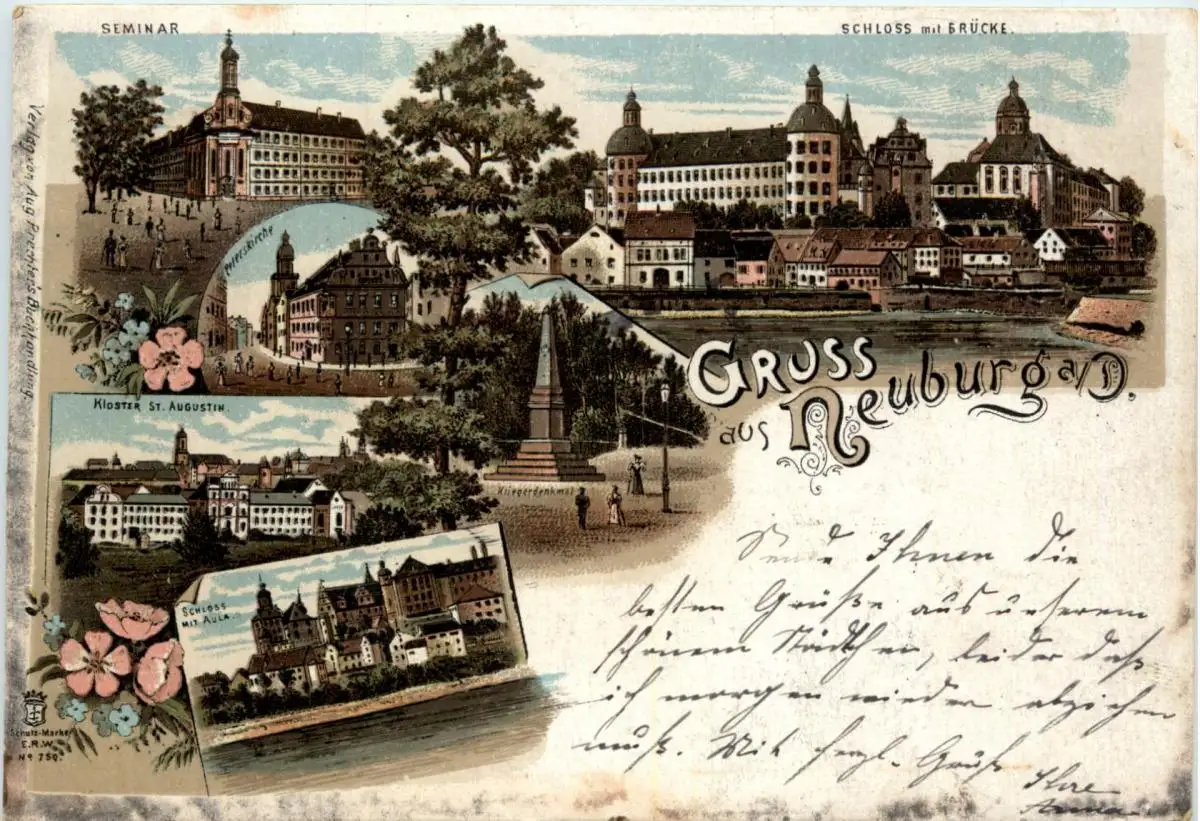 SEMINAR
SCHLOSS mit BRÜCKE.
Verlag von Aug. Prechter's Buchhandlung.
Peterskirche
GRUSS
aus Neuburg a/D.
KLOSTER ST. AUGUSTIN.
Kriegerdenkmal
SCHLOSS
MIT AULA.
Schutz-Marke
E.R.W.
No 750.
Sende Ihnen die
besten Grüße aus unserem
schönem Städtchen, leider daß
ich morgen wieder abziehen
muß. Mit herzl. Gruß
Ihre
Anna.